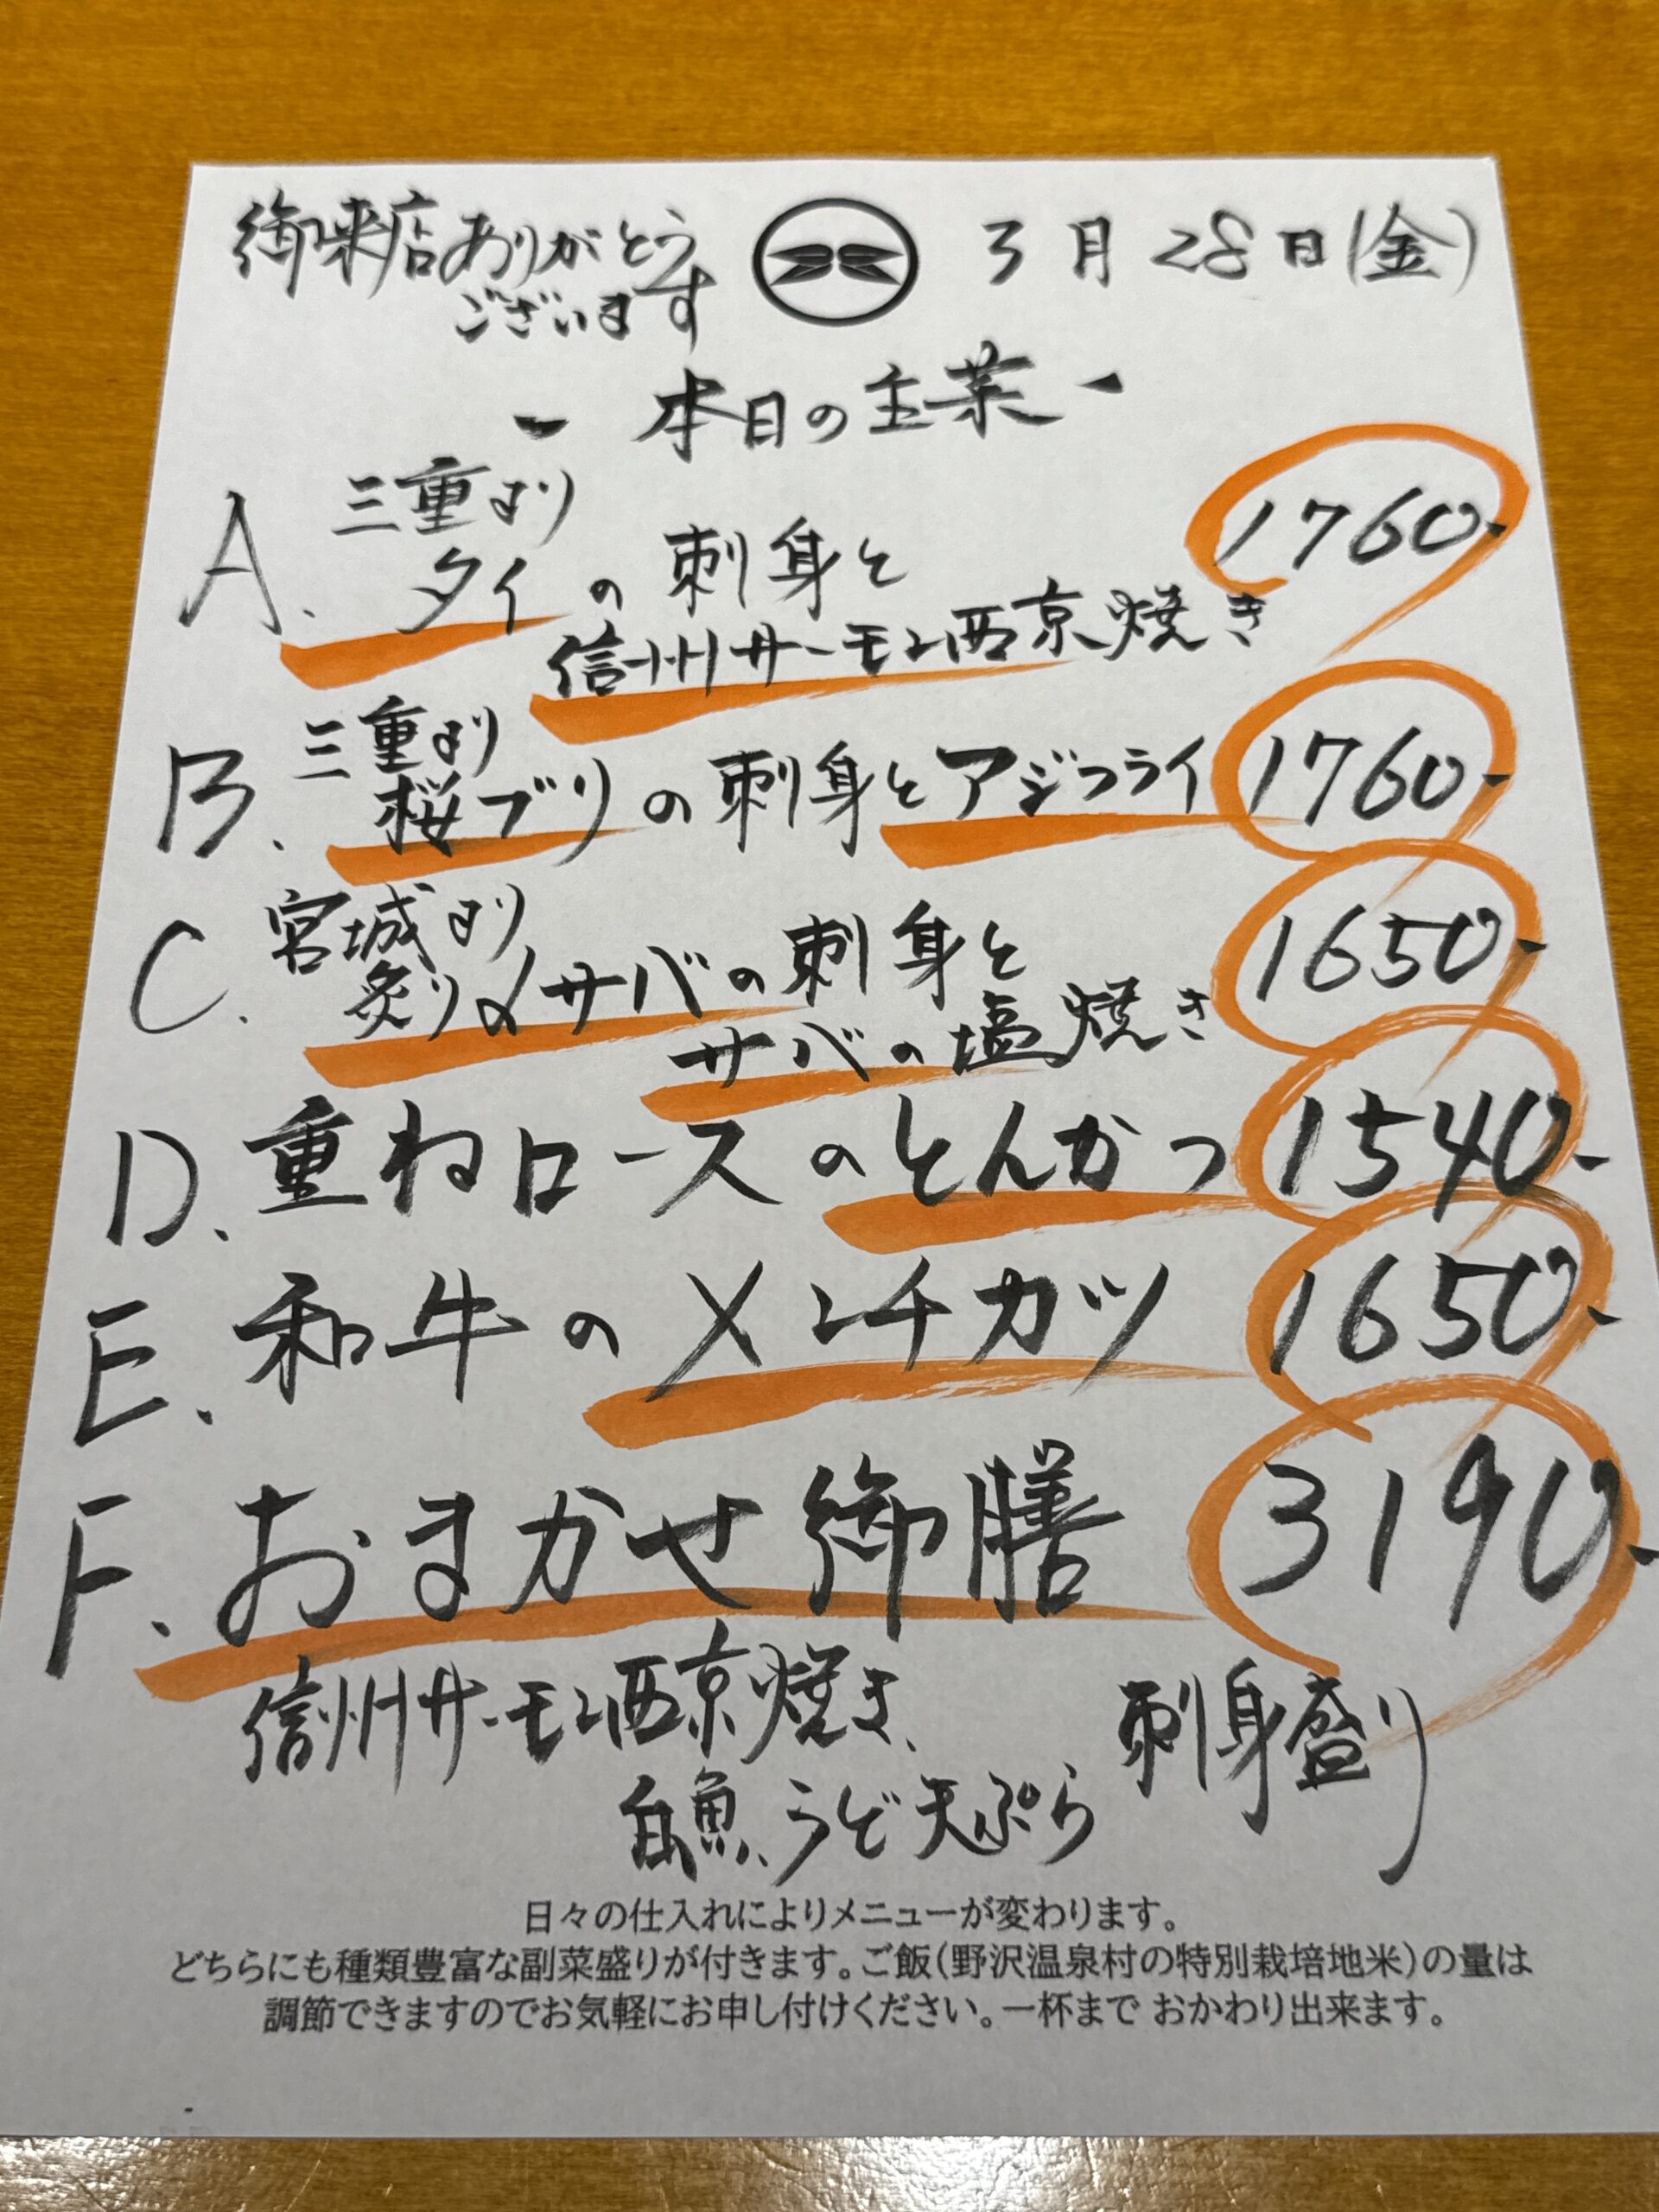 御来店ありがとう
ございます
3月28日(金)
- 本日の主菜 -
A. 三重より
タイの刺身と
信州サーモン西京焼き 1760-
B. 三重より
桜ブリの刺身とアジフライ 1760-
C. 宮城より
炙り〆サバの刺身と
サバの塩焼き 1650-
D. 重ねロースのとんかつ 1540-
E. 和牛のメンチカツ 1650-
F. おまかせ御膳 3190-
信州サーモン西京焼き、 刺身盛り
白魚、うど天ぷら
日々の仕入れによりメニューが変わります。
どちらにも種類豊富な副菜盛りが付きます。ご飯(野沢温泉村の特別栽培地米)の量は
調節できますのでお気軽にお申し付けください。一杯まで おかわり出来ます。